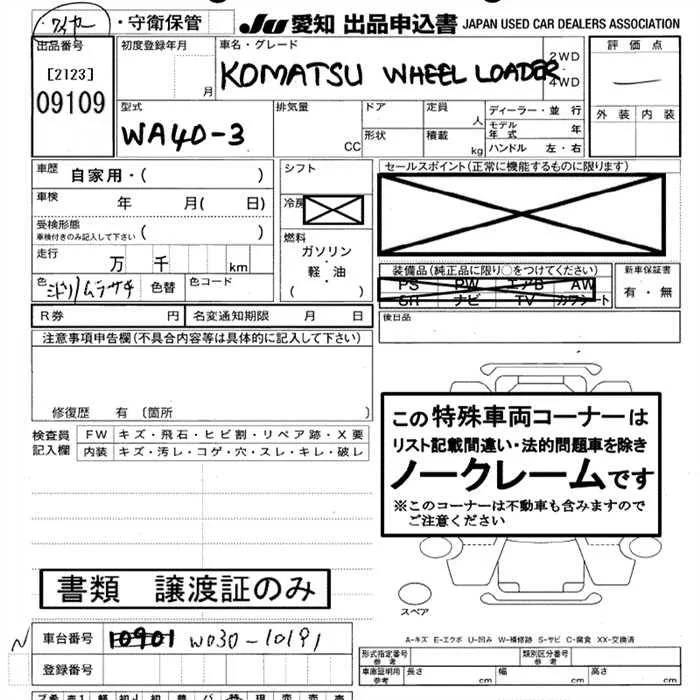 ワイヤー ・守衛保管
JU 愛知 出品申込書 JAPAN USED CAR DEALERS ASSOCIATION
出品番号 初度登録年月 車名・グレード 評価点
[2123] 月 KOMATSU WHEEL LOADER 2WD・4WD
09109
型式 排気量 ドア 定員 人 ディーラー・並行 外装 内装
WA40-3 CC 形状 積載 kg モデル年式 年
ハンドル 左・右
車歴 自家用・( ) シフト セールスポイント(正常に機能するものに限ります)
車検 年 月( 日) 冷房
受検形態 ( )
車検付きのみ記入して下さい
燃料
走行 万 千 km ガソリン・軽・油 ( )
装備品(純正品に限り○をつけてください) 新車保証書
PS PW エアB AW 有・無
SR ナビ TV カワシート
色 ミドリ/ムラサキ 色替 色コード
R券 円 名変通知期限 月 日 後日品
注意事項申告欄(不具合内容等は具体的に記入して下さい)
修復歴 有〔箇所 〕
検査員 FW キズ・飛石・ヒビ割・リペア跡・X要
記入欄 内装 キズ・汚レ・コゲ・穴・スレ・キレ・破レ
この特殊車両コーナーは
リスト記載間違い・法的問題車を除き
ノークレームです
※このコーナーは不動車も含みますので
ご注意ください
書類 譲渡証のみ
スペア
A-キズ E-エクボ U-凹み W-補修跡 S-サビ C-腐食 XX-交換済
N 車台番号 10901 W030-10191
登録番号
形式指定番号 参考 類別区分番号 参考
車庫証明用 参考 長さ cm 幅 cm 高さ cm